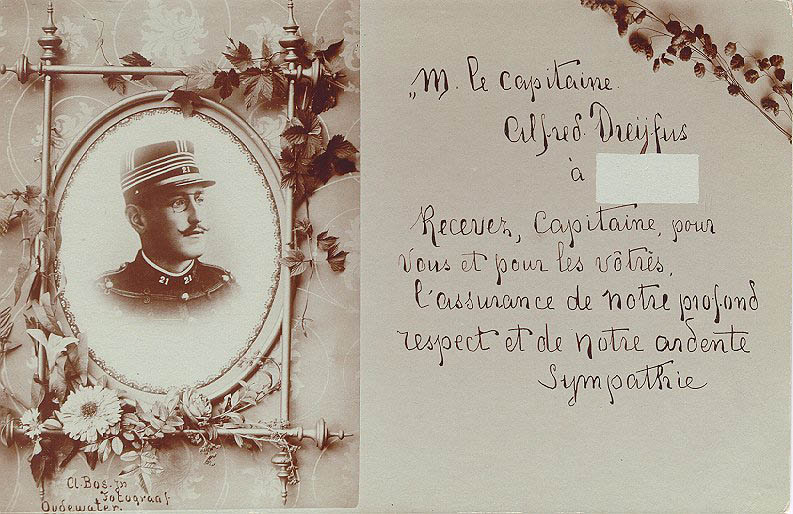 21
21 21
Cl. Bos. Jn
Fotograaf
Oudewater.
„M. le Capitaine.
Alfred Dreÿfus
à
Recevez, Capitaine, pour
vous et pour les vôtres,
l'assurance de notre profond
respect et de notre ardente
Sympathie